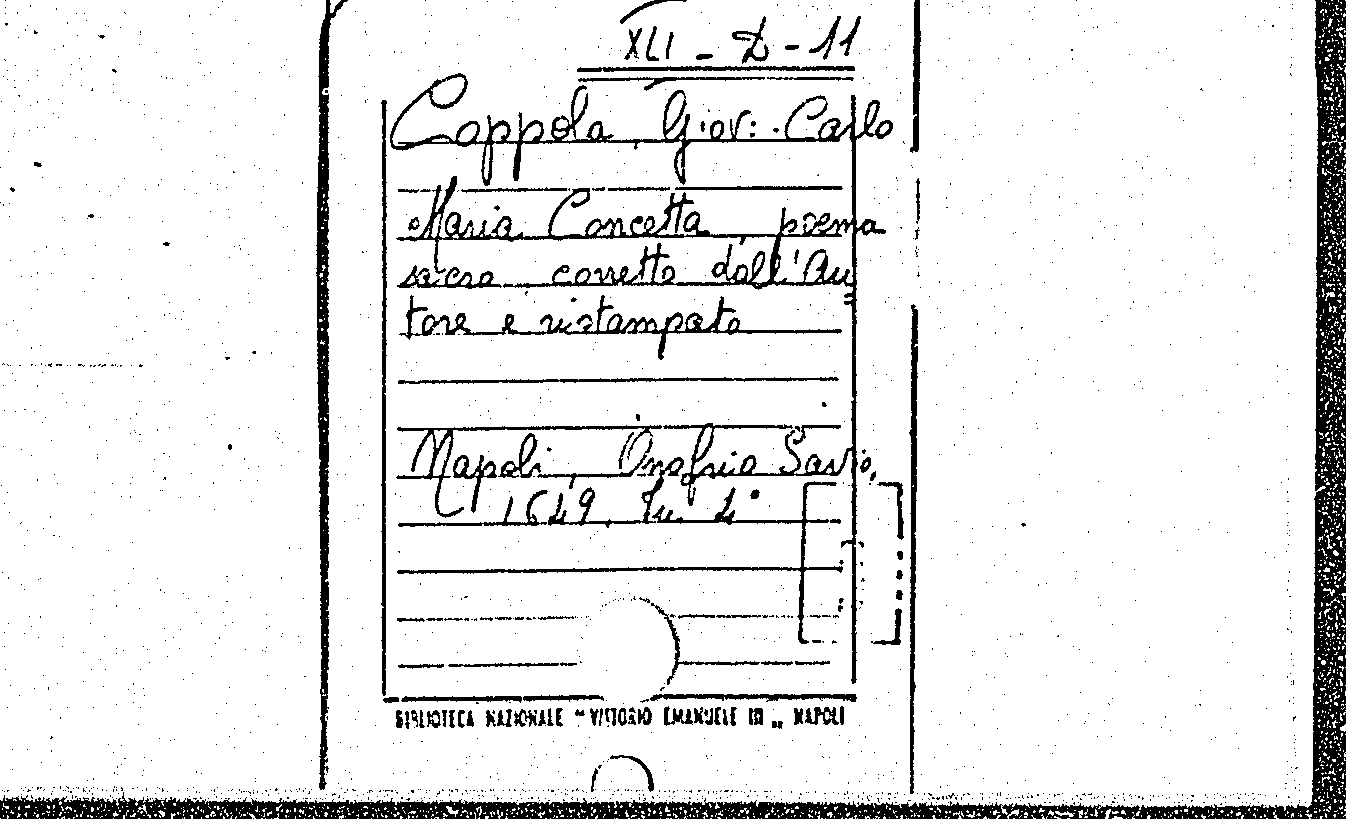 XLI - D - 11
Coppola, Giov: Carlo
Maria Concetta, poema
sacro, corretto dall'Au=
tore e ristampato
Napoli, Onofrio Savio,
1649. In 4°
BIBLIOTECA NAZIONALE "VITTORIO EMANUELE III„ NAPOLI